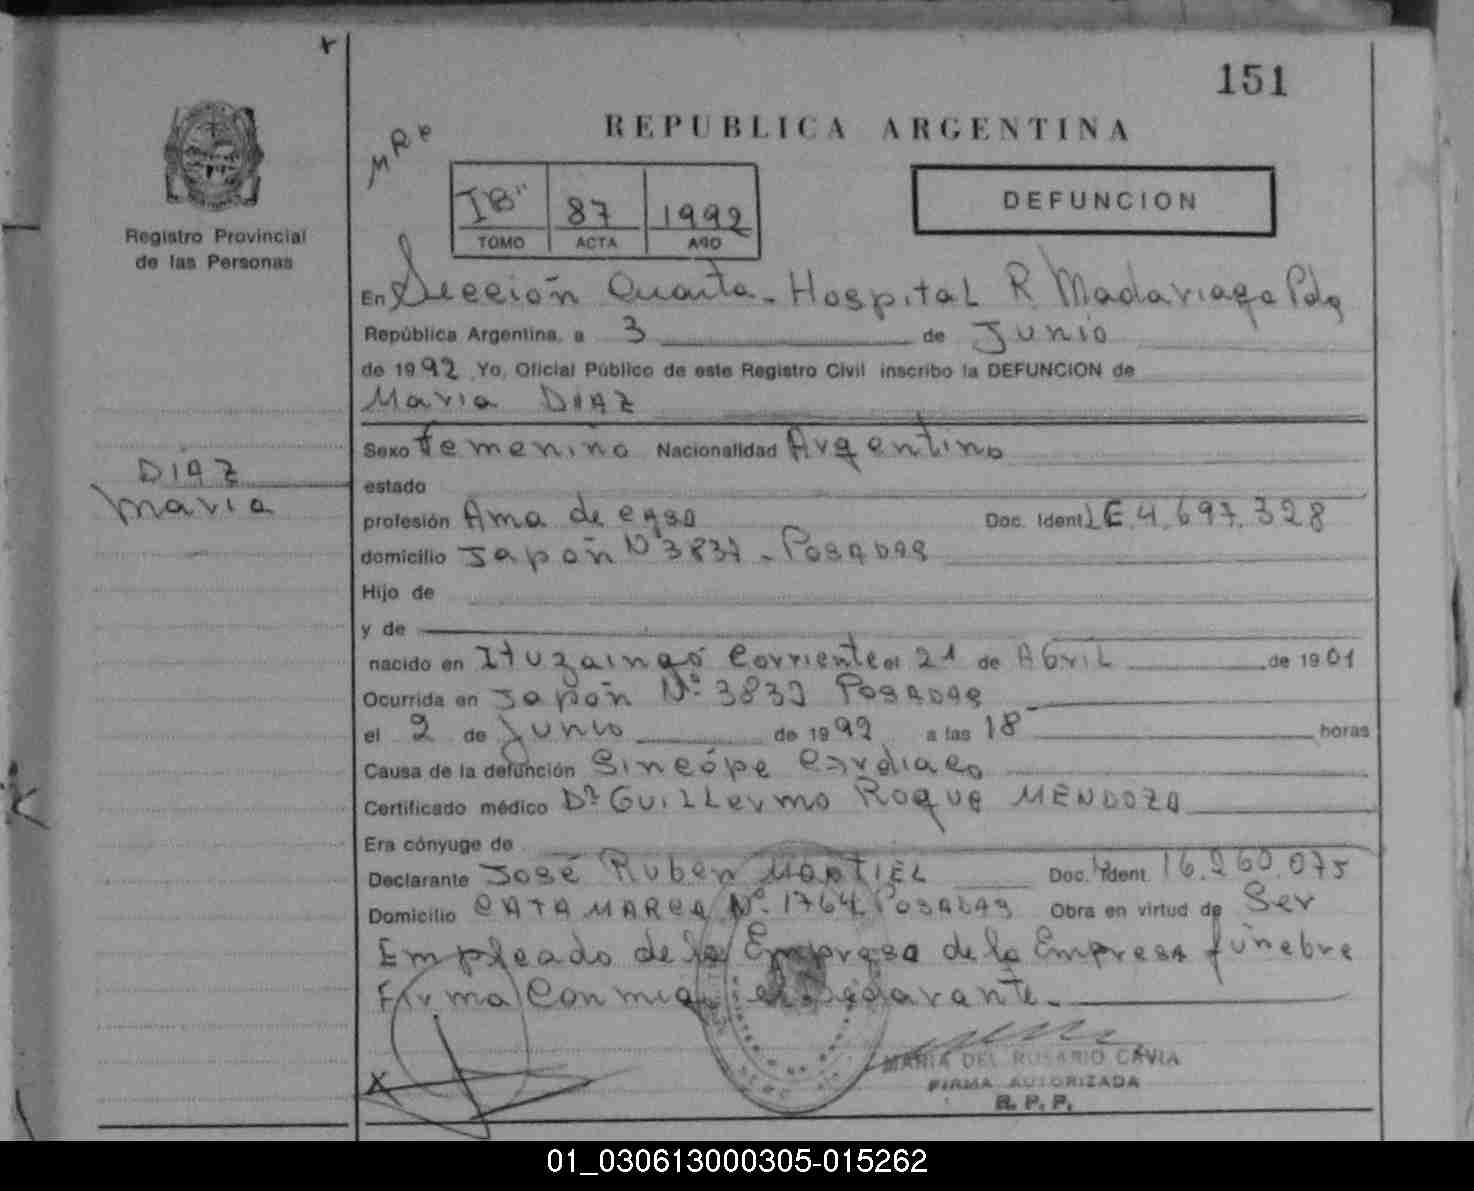 151
REPUBLICA ARGENTINA
Registro Provincial
de las Personas
DEFUNCION
IB" 87 1992
TOMO ACTA AÑO
En Sección Cuarta - Hospital R Madariaga Pdas
República Argentina, a 3 de Junio
de 1992 Yo, Oficial Público de este Registro Civil inscribo la DEFUNCION de
Maria DIAZ
DIAZ
Maria
Sexo femenino Nacionalidad Argentino
estado
profesión Ama de casa Doc. Ident. LE 4.697.328
domicilio Japón Nº 3837 - POSADAS
Hijo de
y de
nacido en Ituzaingó Corrientes el 21 de Abril de 1901
Ocurrida en Japón Nº 3837 POSADAS
el 2 de Junio de 1992 a las 18 horas
Causa de la defunción Sincópe Cardiaco
Certificado médico Dr Guillermo Roque MENDOZA
Era cónyuge de
Declarante José Ruben MONTIEL Doc. Ident. 16.260.075
Domicilio CATAMARCA Nº 1764 POSADAS Obra en virtud de Ser
Empleado de la Empresa de la Empresa funebre
Firma Conmigo el declarante.
MARIA DEL ROSARIO CAVIA
FIRMA AUTORIZADA
R. P. P.
01_030613000305-015262